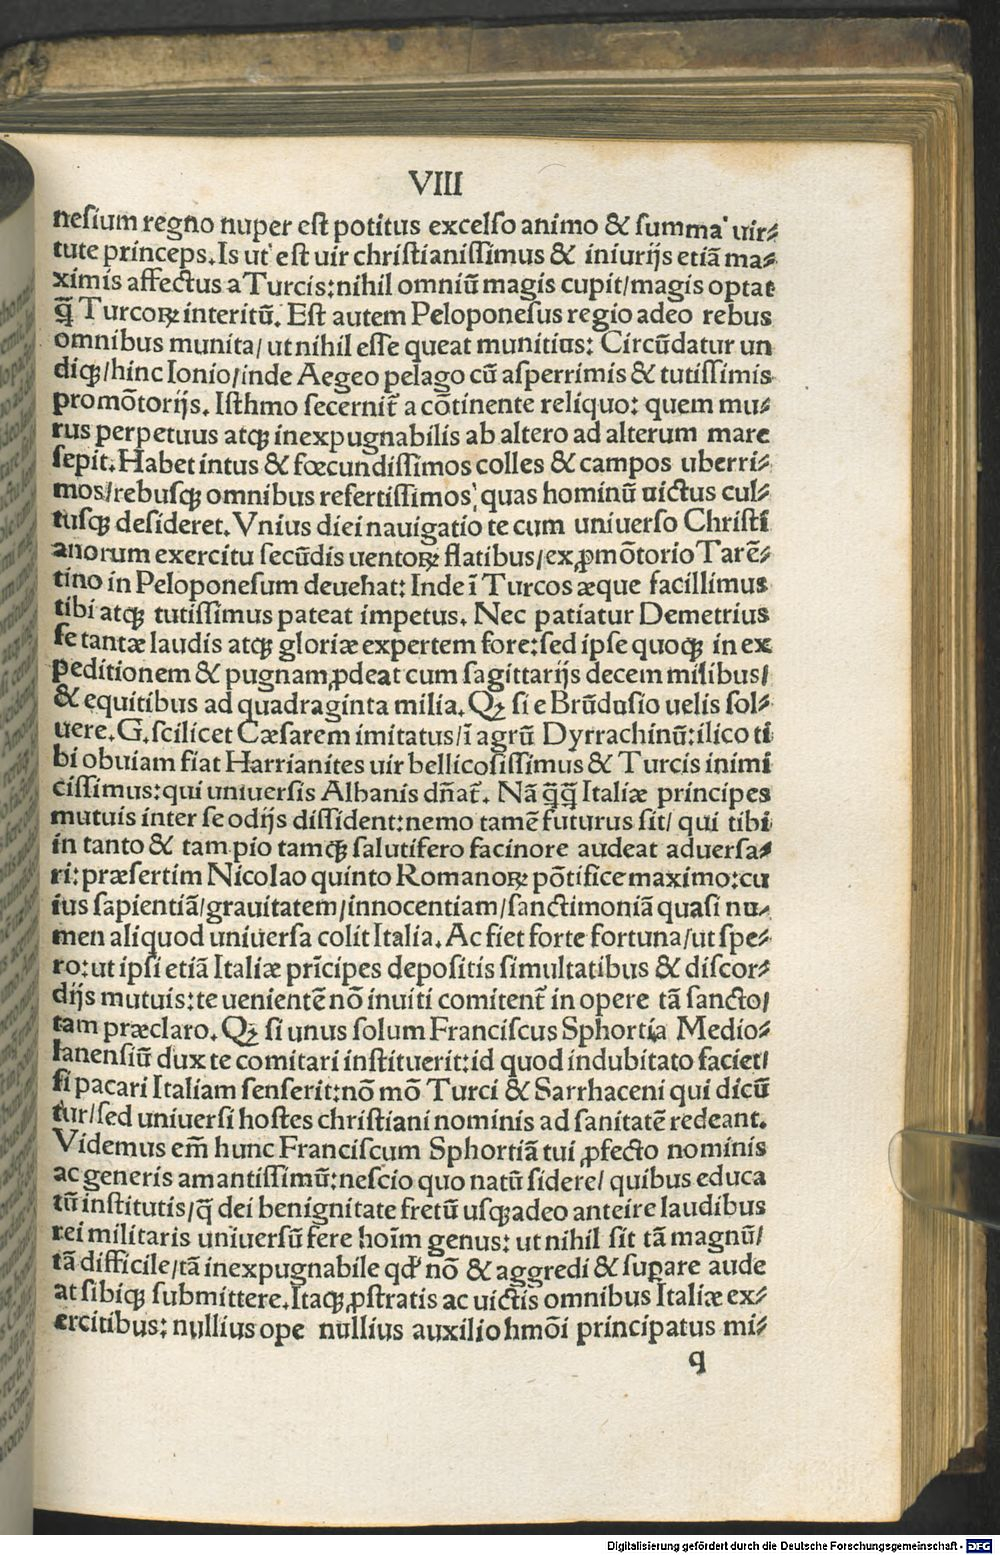 VIII
neſium regno nuper eſt potitus excelſo animo & ſumma uir⸗
tute princeps. Is ut eſt uir chriſtianiſſimus & iniurijs etiã ma⸗
ximis affectus a Turcis: nihil omniũ magis cupit/magis optat
q̃ Turcoꝝ interitũ. Eſt autem Peloponeſus regio adeo rebus
omnibus munita/ ut nihil eſſe queat munitius: Circũdatur un
diqꝫ/hinc Ionio/inde Aegeo pelago cũ aſperrimis & tutiſſimis
promõtorijs. Iſthmo ſecernit̃ a cõtinente reliquo: quem mu⸗
rus perpetuus atqꝫ inexpugnabilis ab altero ad alterum mare
ſepit. Habet intus & fœcundiſſimos colles & campos uberri⸗
mos/rebuſqꝫ omnibus refertiſſimos, quas hominũ uictus cul⸗
tuſqꝫ deſideret. Vnius diei nauigatio te cum uniuerſo Chriſti
anorum exercitu ſecũdis uentoꝝ flatibus/ex ꝓmõtorio Tarẽ⸗
tino in Peloponeſum deuehat: Inde ĩ Turcos æque facillimus
tibi atqꝫ tutiſſimus pateat impetus. Nec patiatur Demetrius
ſe tantæ laudis atqꝫ gloriæ expertem fore: ſed ipſe quoqꝫ in ex
peditionem & pugnam ꝓdeat cum ſagittarijs decem milibus/
& equitibus ad quadraginta milia. Qꝫ ſi e Brũduſio uelis ſol⸗
uere. G. ſcilicet Cæſarem imitatus/ĩ agrũ Dyrrachinũ: ilico ti
bi obuiam fiat Harrianites uir bellicoſiſſimus & Turcis inimi
ciſſimus: qui uniuerſis Albanis dñat̃. Nã q̃q̃ Italiæ principes
mutuis inter ſe odijs diſſident: nemo tamẽ futurus ſit/ qui tibi
in tanto & tam pio tamqꝫ ſalutifero facinore audeat aduerſa⸗
ri: præſertim Nicolao quinto Romanoꝝ põtifice maximo: cu
ius ſapientiã/grauitatem/innocentiam/ſanctimoniã quaſi nu⸗
men aliquod uniuerſa colit Italia. Ac fiet forte fortuna/ut ſpe⸗
ro: ut ipſi etiã Italiæ prĩcipes depoſitis ſimultatibus & diſcor⸗
dijs mutuis: te uenientẽ nõ inuiti comitent̃ in opere tã ſancto/
tam præclaro. Qꝫ ſi unus ſolum Franciſcus Sphortia Medio⸗
lanenſiũ dux te comitari inſtituerit: id quod indubitato faciet/
ſi pacari Italiam ſenſerit: nõ mõ Turci & Sarrhaceni qui dicũ
tur/ſed uniuerſi hoſtes chriſtiani nominis ad ſanitatẽ redeant.
Videmus em̃ hunc Franciſcum Sphortiã tui ꝓfecto nominis
ac generis amantiſſimũ: neſcio quo natũ ſidere/ quibus educa
tũ inſtitutis/q̃ dei benignitate fretũ uſqꝫ adeo anteire laudibus
rei militaris uniuerſũ fere hoĩm genus: ut nihil ſit tã magnũ/
tã difficile/tã inexpugnabile qd' nõ & aggredi & ſuꝑare aude
at ſibiqꝫ ſubmittere. Itaqꝫ ꝓſtratis ac uictis omnibus Italiæ ex⸗
ercitibus: nullius ope nullius auxilio hmõi principatus mi⸗
q
Digitalisierung gefördert durch die Deutsche Forschungsgemeinschaft - DFG